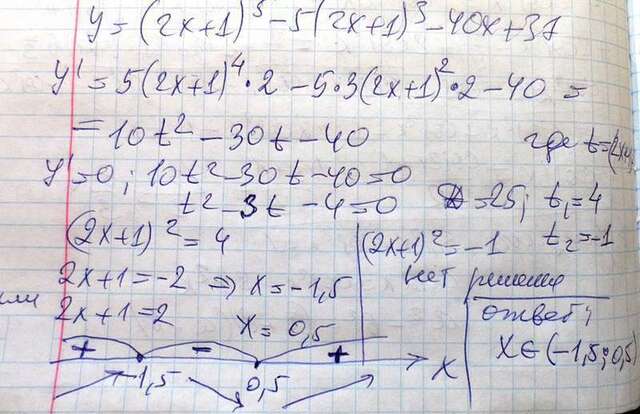 y = (2x+1)⁵ - 5(2x+1)³ - 40x + 37
y' = 5(2x+1)⁴·2 - 5·3(2x+1)²·2 - 40 =
= 10t² - 30t - 40 где t = (2x+1)
y' = 0; 10t² - 30t - 40 = 0
t² - 3t - 4 = 0 D = 25; t₁ = 4
t₂ = -1
(2x+1)² = 4
2x+1 = -2 ⇒ x = -1,5
или 2x+1 = 2
x = 0,5
(2x+1)² = -1
нет решения
ответ:
x ∈ (-1,5; 0,5)
+ - + x
-1,5 0,5